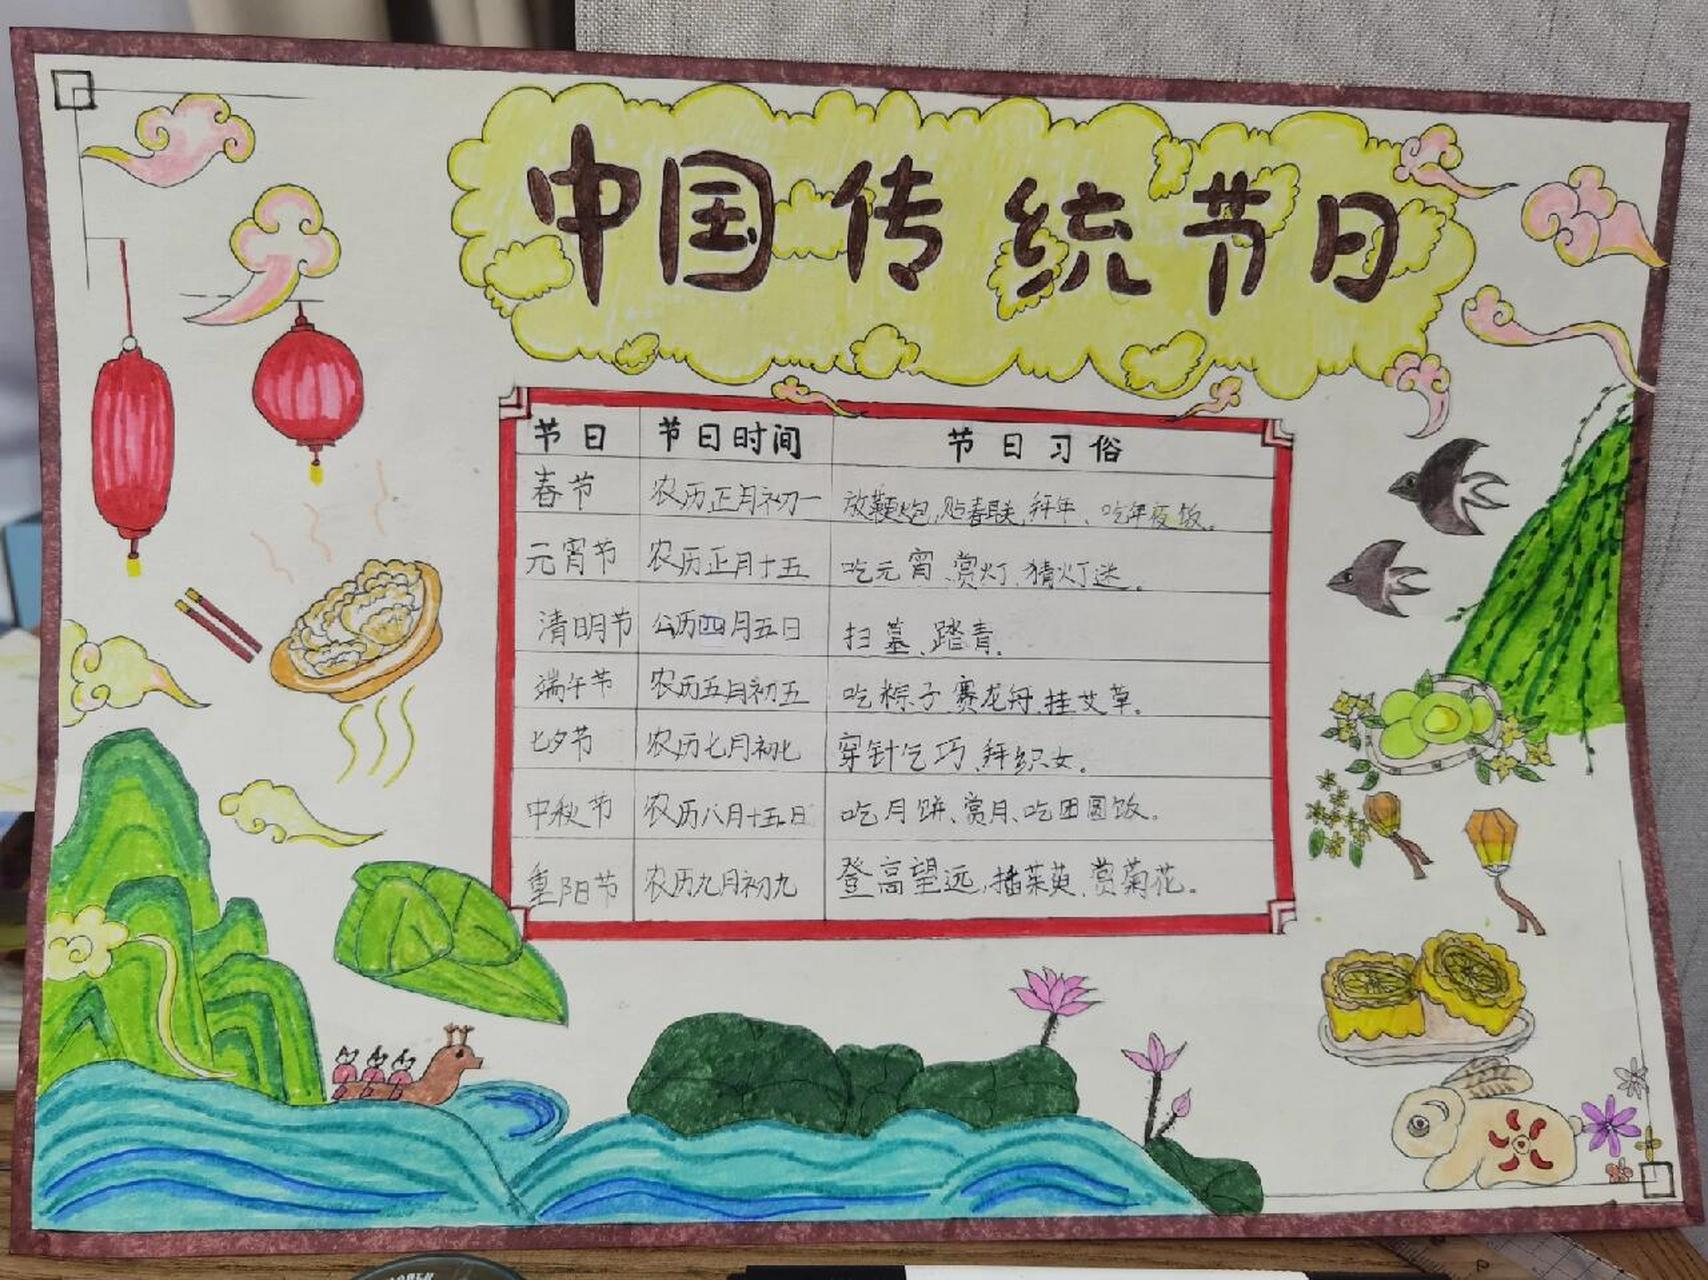 中国传统节日
节日 节日时间 节日习俗
春节 农历正月初一 放鞭炮,贴春联,拜年、吃年夜饭。
元宵节 农历正月十五 吃元宵、赏灯、猜灯迷。
清明节 公历四月五日 扫墓、踏青。
端午节 农历五月初五 吃粽子、赛龙舟、挂艾草。
七夕节 农历七月初七 穿针乞巧、拜织女。
中秋节 农历八月十五日 吃月饼、赏月、吃团圆饭。
重阳节 农历九月初九 登高望远,插茱萸、赏菊花。